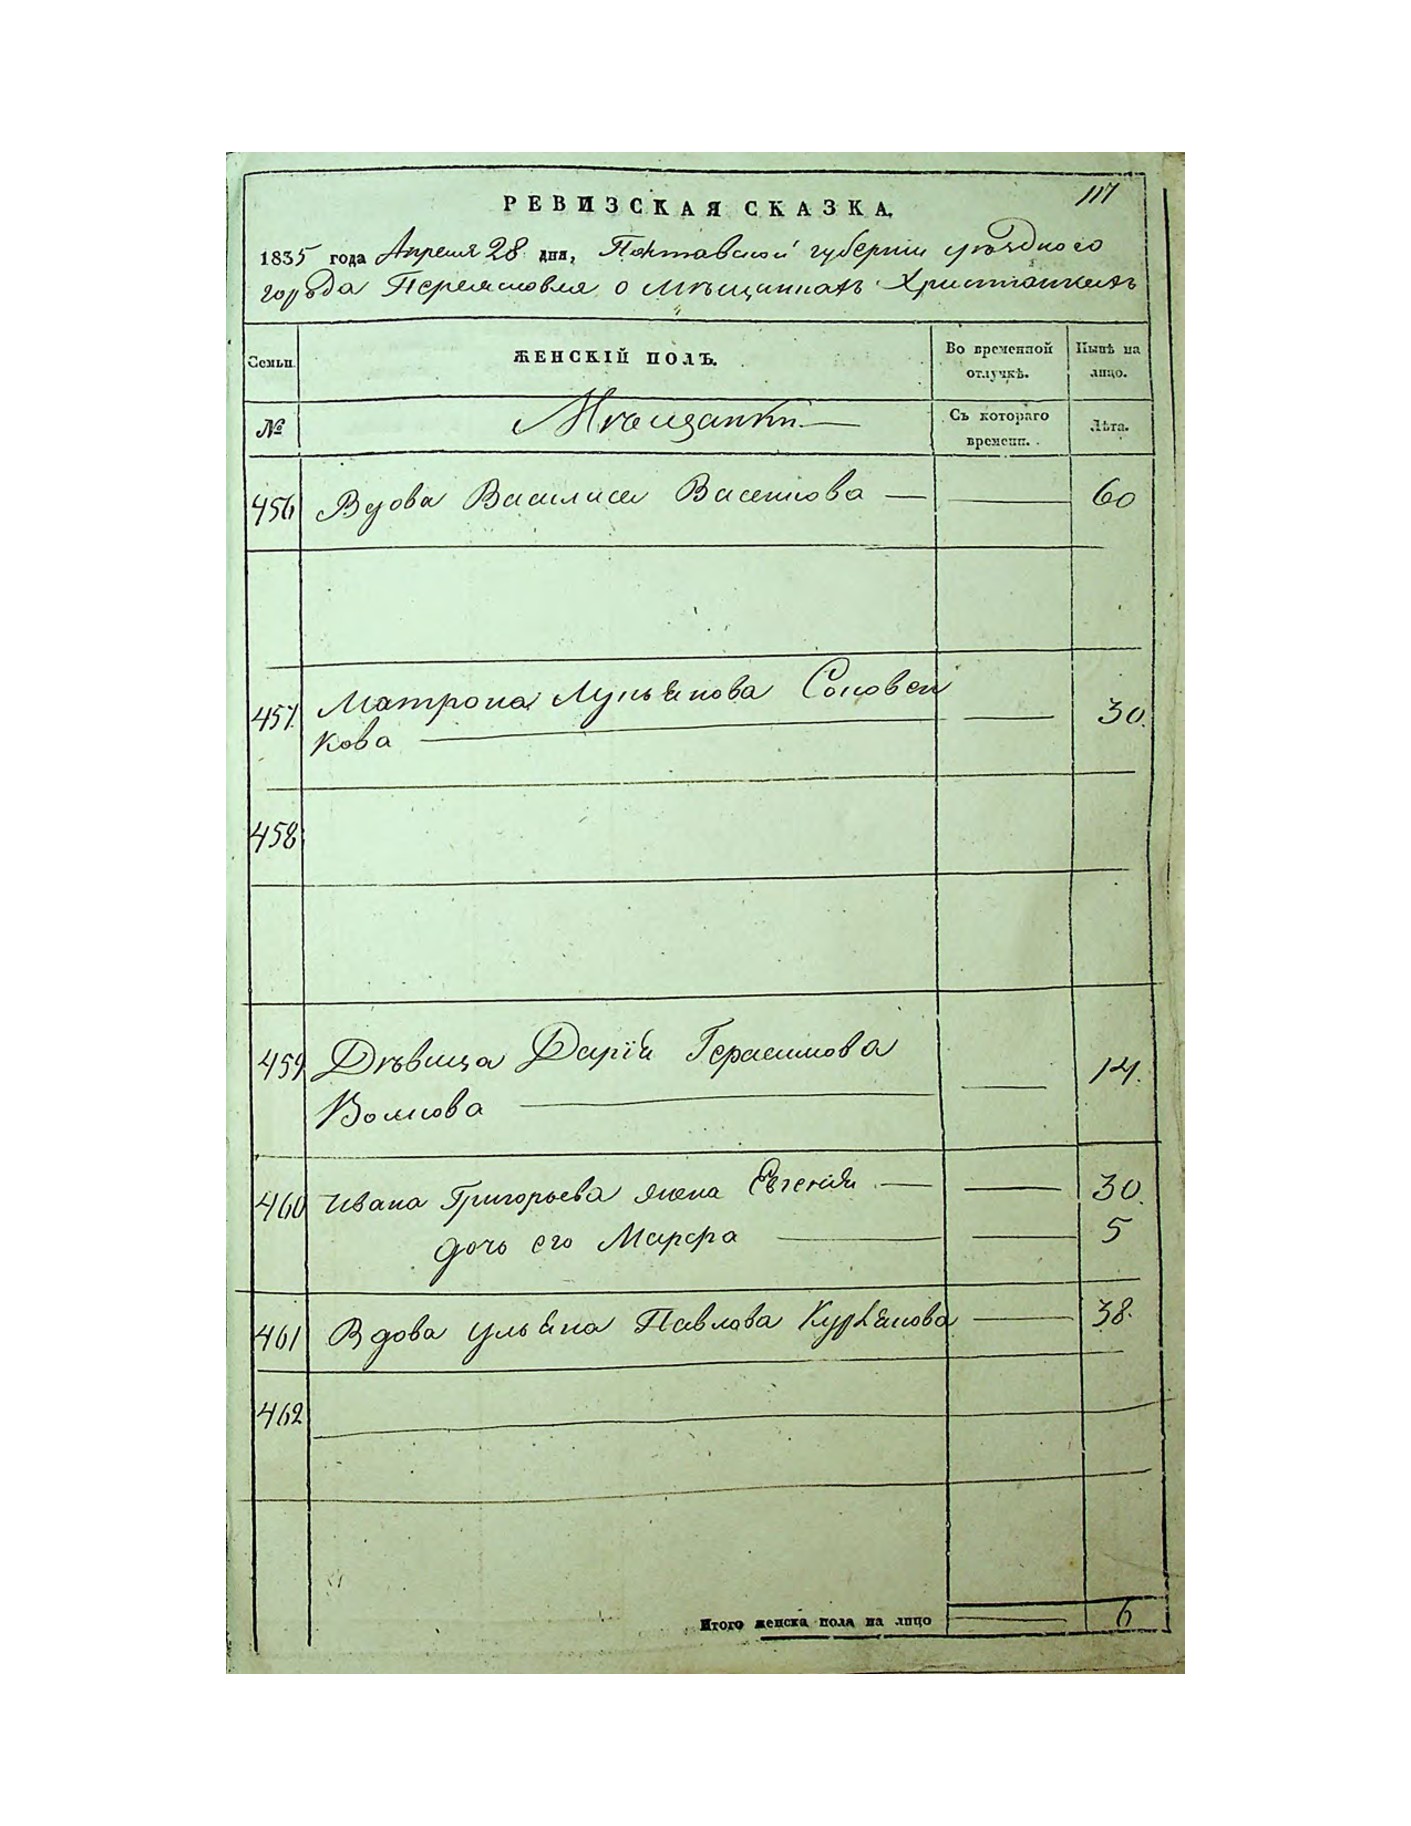 117
РЕВИЗСКАЯ СКАЗКА.
1835 года Апреля 28 дня, Полтавской губернии уѣздного
города Переяславля о мѣщанкахъ Христіанкахъ
Семьи. ЖЕНСКІЙ ПОЛЪ. Во временной отлучкѣ. Нынѣ на лицо.
№ Мѣщанки. Съ котораго времени. Лѣта.
456 Вдова Василиса 60
457. Матрона Лукьянова Соловей
кова 30.
458
459 Дѣвица Дарія Герасимова
Волкова 14.
460 Ивана Григорьева жена Евгенія 30.
дочь его Марфа 5
461 Вдова Ульяна Павлова 38.
462
Итого женска пола на лицо 6